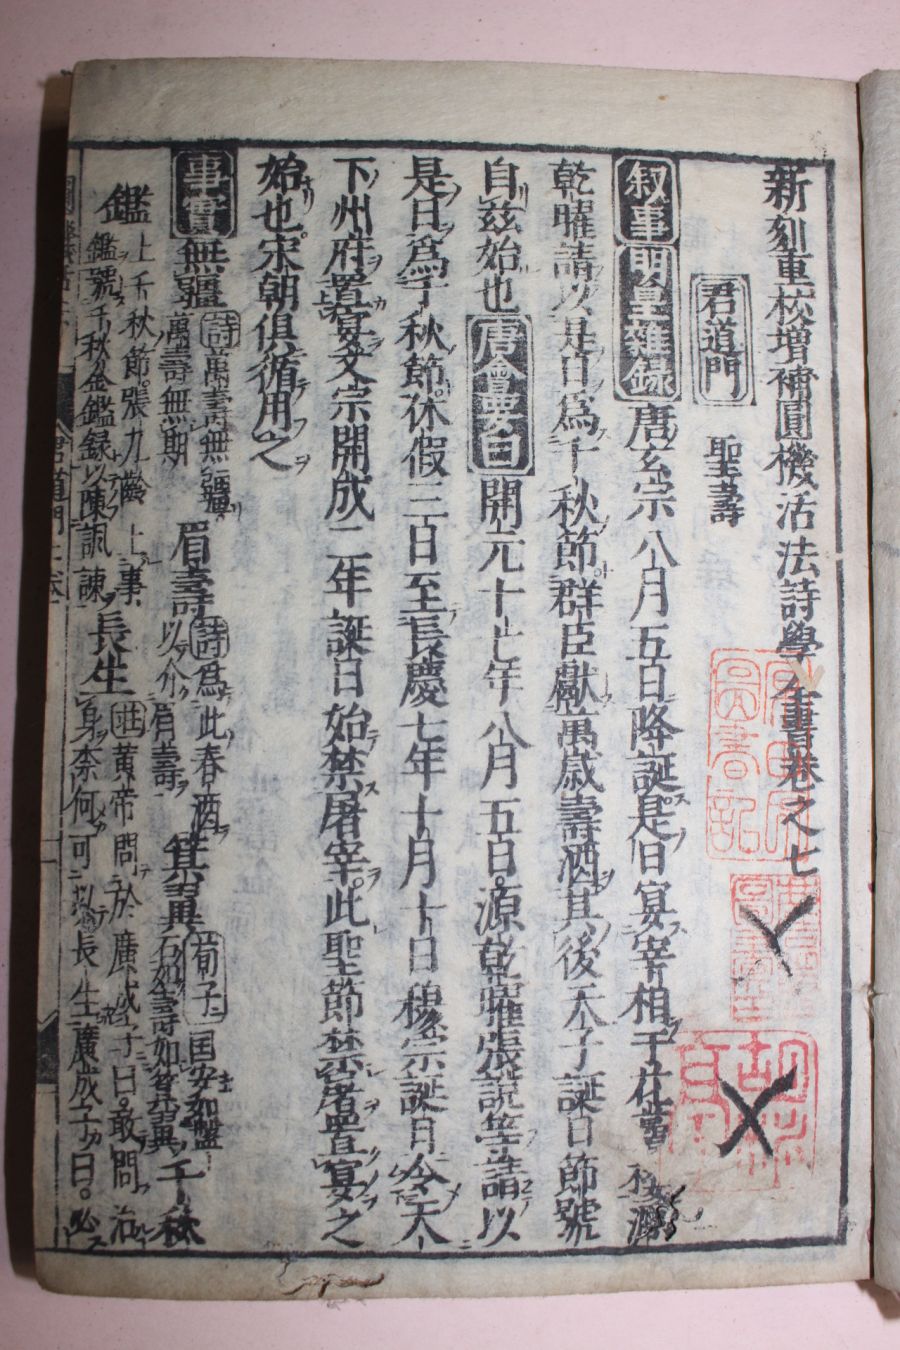 新刻重校增補圓機活法詩學全書卷之七
君道門 聖壽
叙事 明皇雜録 唐玄宗八月五日降誕是日宴宰相于花萼
乾曜請以是日為千秋節群臣獻萬歳壽酒其後天子誕日節號
自茲始也 唐會要曰 開元十七年八月五日源乾曜張説等上請以
是日爲千秋節休假三日至長慶七年十月十日穆宗誕月令天
下州府置宴文宗開成二年誕日始禁屠宰此聖節禁屠置宴之
始也宋朝俱循用之
事實 無疆 詩萬壽無疆 萬壽無期 眉壽 詩為此春酒 以介眉壽 箕翼 荀子 国安如盤石如壽如箕翼 千秋
鑑 上千秋節張九齡上事鑑號千秋金鑑録以陳諷諫 長生 荘黄帝問於廣成子曰敢問治身奈何可以長生廣成子曰必